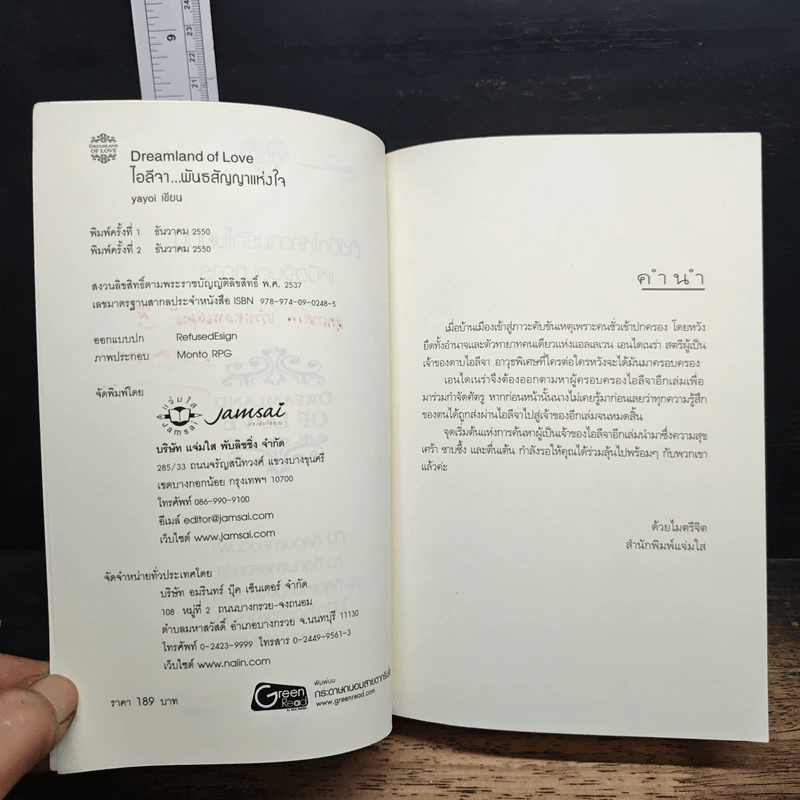 9
24
23
22
21
DREAMLAND
OF LOVE
Dreamland of Love
ไอลีจา...พันธสัญญาแห่งใจ
yayoi เขียน
พิมพ์ครั้งที่ 1 ธันวาคม 2550
พิมพ์ครั้งที่ 2 ธันวาคม 2550
สงวนลิขสิทธิ์ตามพระราชบัญญัติลิขสิทธิ์ พ.ศ. 2537
เลขมาตรฐานสากลประจำหนังสือ ISBN 978-974-09-0248-5
ออกแบบปก RefusedEsign
ภาพประกอบ Monto RPG
จัดพิมพ์โดย
แจ่มใส
Jamsai
Jamsai
บริษัท แจ่มใส พับลิชชิ่ง จำกัด
285/33 ถนนจรัญสนิทวงศ์ แขวงบางขุนศรี
เขตบางกอกน้อย กรุงเทพฯ 10700
โทรศัพท์ 086-990-9100
อีเมล์ editor@jamsai.com
เว็บไซต์ www.jamsai.com
จัดจำหน่ายทั่วประเทศโดย
บริษัท อมรินทร์ บุ๊ค เซ็นเตอร์ จำกัด
108 หมู่ที่ 2 ถนนบางกรวย-จงถนอม
ตำบลมหาสวัสดิ์ อำเภอบางกรวย จ.นนทบุรี 11130
โทรศัพท์ 0-2423-9999 โทรสาร 0-2449-9561-3
เว็บไซต์ www.naiin.com
ราคา 189 บาท
Green
Read
พิมพ์บน
กระดาษถนอมสายตากรีนรี้ด
www.greenread.com
คำนำ
เมื่อบ้านเมืองเข้าสู่ภาวะคับขันเหตุเพราะคนชั่วเข้าปกครอง โดยหวัง
ยึดทั้งอำนาจและตัวทายาทคนเดียวแห่งแอลเลเวน เอนไดเนร่า สตรีผู้เป็น
เจ้าของดาบไอลีจา อาวุธพิเศษที่ใครต่อใครหวังจะได้มันมาครอบครอง
เอนไดเนร่าจึงต้องออกตามหาผู้ครอบครองไอลีจาอีกเล่มเพื่อ
มาร่วมกำจัดศัตรู หากก่อนหน้านั้นนางไม่เคยรู้มาก่อนเลยว่าทุกความรู้สึก
ของตนได้ถูกส่งผ่านไอลีจาไปสู่เจ้าของอีกเล่มจนหมดสิ้น
จุดเริ่มต้นแห่งการค้นหาผู้เป็นเจ้าของไอลีจาอีกเล่มนำมาซึ่งความสุข
เศร้า ซาบซึ้ง และตื่นเต้น กำลังรอให้คุณได้ร่วมลุ้นไปพร้อมๆ กับพวกเขา
แล้วค่ะ
ด้วยไมตรีจิต
สำนักพิมพ์แจ่มใส